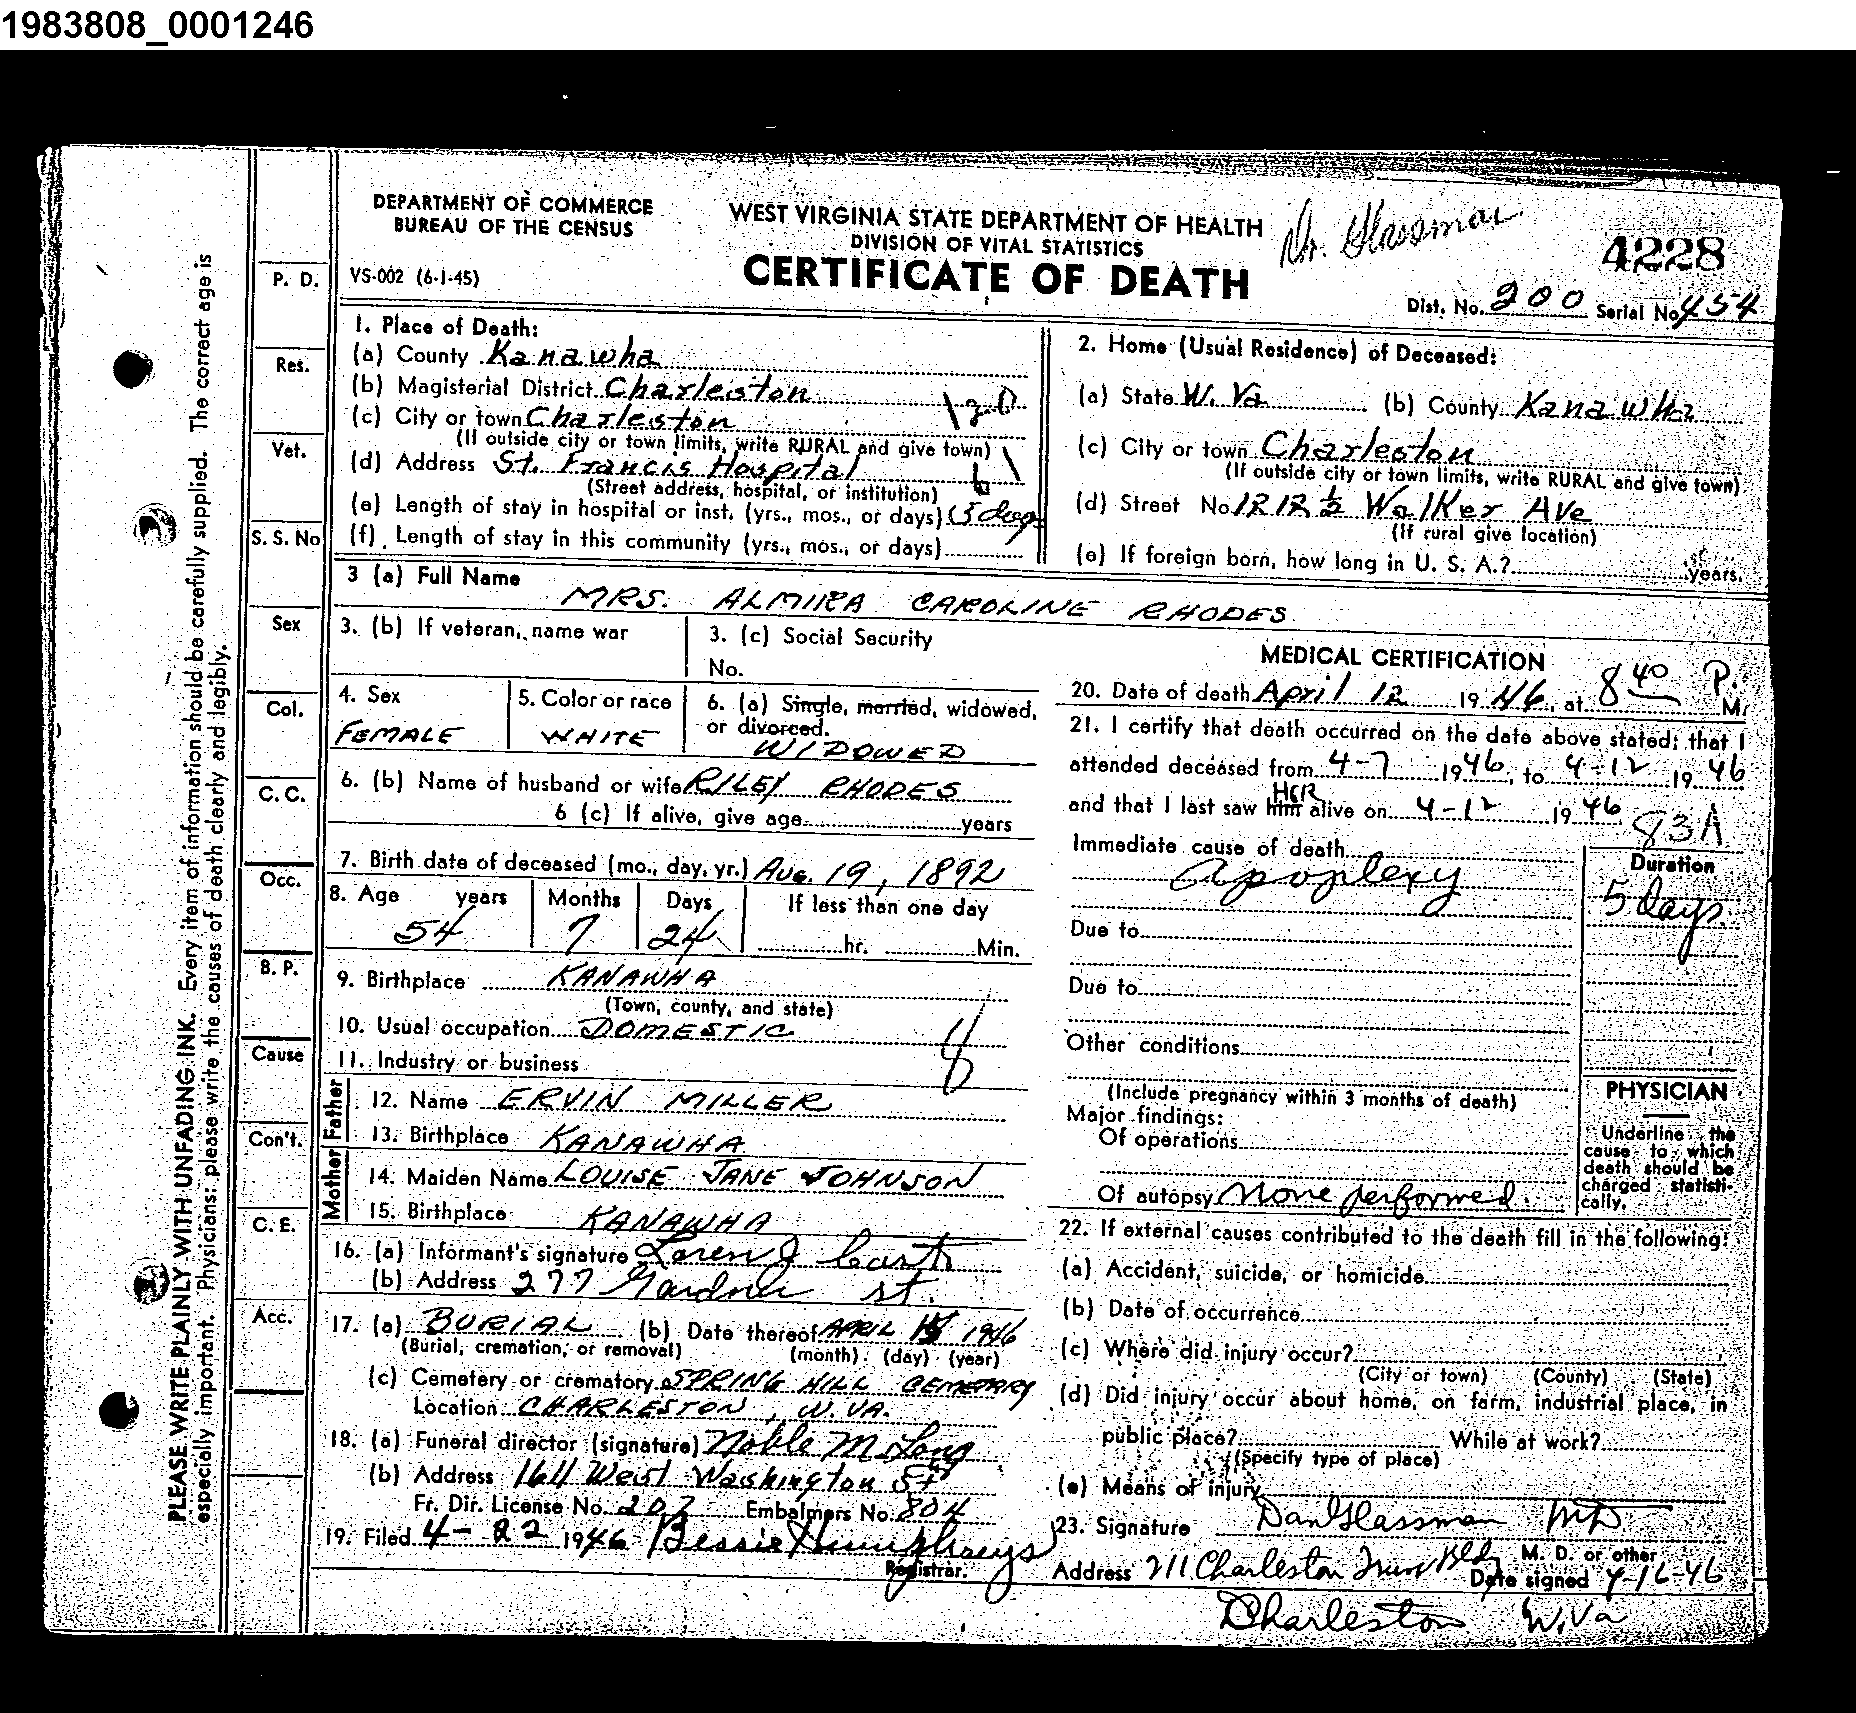 1983808_0001246
DEPARTMENT OF COMMERCE
BUREAU OF THE CENSUS
WEST VIRGINIA STATE DEPARTMENT OF HEALTH
DIVISION OF VITAL STATISTICS
Dr. Glassman
4228
VS-002 (6-1-45)
CERTIFICATE OF DEATH
Dist. No. 200 Serial No. 454
PLEASE WRITE PLAINLY WITH UNFADING INK. Every item of information should be carefully supplied. The correct age is
especially important. Physicians: please write the causes of death clearly and legibly.
P. D.
Res.
Vet.
S. S. No
Sex
Col.
C. C.
Occ.
B. P.
Cause
Con't.
C. E.
Acc.
1. Place of Death:
(a) County Kanawha
(b) Magisterial District Charleston
120
(c) City or town Charleston
(If outside city or town limits, write RURAL and give town)
(d) Address St. Francis Hospital
(Street address, hospital, or institution)
(e) Length of stay in hospital or inst. (yrs., mos., or days) 5 days
(f) Length of stay in this community (yrs., mos., or days)
2. Home (Usual Residence) of Deceased:
(a) State W. Va (b) County Kanawha
(c) City or town Charleston
(If outside city or town limits, write RURAL and give town)
(d) Street No 1212 ½ Walker Ave
(If rural give location)
(e) If foreign born, how long in U. S. A.? years.
3 (a) Full Name MRS. ALMIRA CAROLINE RHODES
3. (b) If veteran, name war
3. (c) Social Security
No.
4. Sex
FEMALE
5. Color or race
WHITE
6. (a) Single, married, widowed,
or divorced.
WIDOWED
6. (b) Name of husband or wife RILEY RHODES
6 (c) If alive, give age years
7. Birth date of deceased (mo., day, yr.) AUG. 19, 1892
8. Age years Months Days If less than one day
54 7 24 hr. Min.
9. Birthplace KANAWHA
(Town, county, and state)
10. Usual occupation DOMESTIC
11. Industry or business
Father
12. Name ERVIN MILLER
13. Birthplace KANAWHA
Mother
14. Maiden Name LOUISE JANE JOHNSON
15. Birthplace KANAWHA
16. (a) Informant's signature Loren J
(b) Address 277 Gardner St.
17. (a) BURIAL (b) Date thereof APRIL 1946
(Burial, cremation, or removal) (month) (day) (year)
(c) Cemetery or crematory SPRING HILL CEMETARY
Location CHARLESTON, W. VA.
18. (a) Funeral director (signature) Noble M. Long
(b) Address 1611 West Washington St
Fr. Dir. License No. 207 Embalmers No. 804
19. Filed 4-22 1946 Bessie Humphreys
Registrar.
MEDICAL CERTIFICATION
20. Date of death April 12 1946, at 8 40 P. M.
21. I certify that death occurred on the date above stated; that I
attended deceased from 4-7 1946, to 4-12 1946
HER
and that I last saw him alive on 4-12 1946
83A
Immediate cause of death
Apoplexy
Duration
5 days
Due to
Due to
Other conditions
(Include pregnancy within 3 months of death)
Major findings:
Of operations
Of autopsy None performed.
PHYSICIAN
Underline the
cause to which
death should be
charged statisti-
cally.
22. If external causes contributed to the death fill in the following:
(a) Accident, suicide, or homicide
(b) Date of occurrence
(c) Where did injury occur?
(City or town) (County) (State)
(d) Did injury occur about home, on farm, industrial place, in
public place? While at work?
(Specify type of place)
(e) Means of injury
23. Signature Dan Glassman MD
M. D. or other
Address 211 Charleston Bldg Date signed 4-16-46
Charleston W. Va